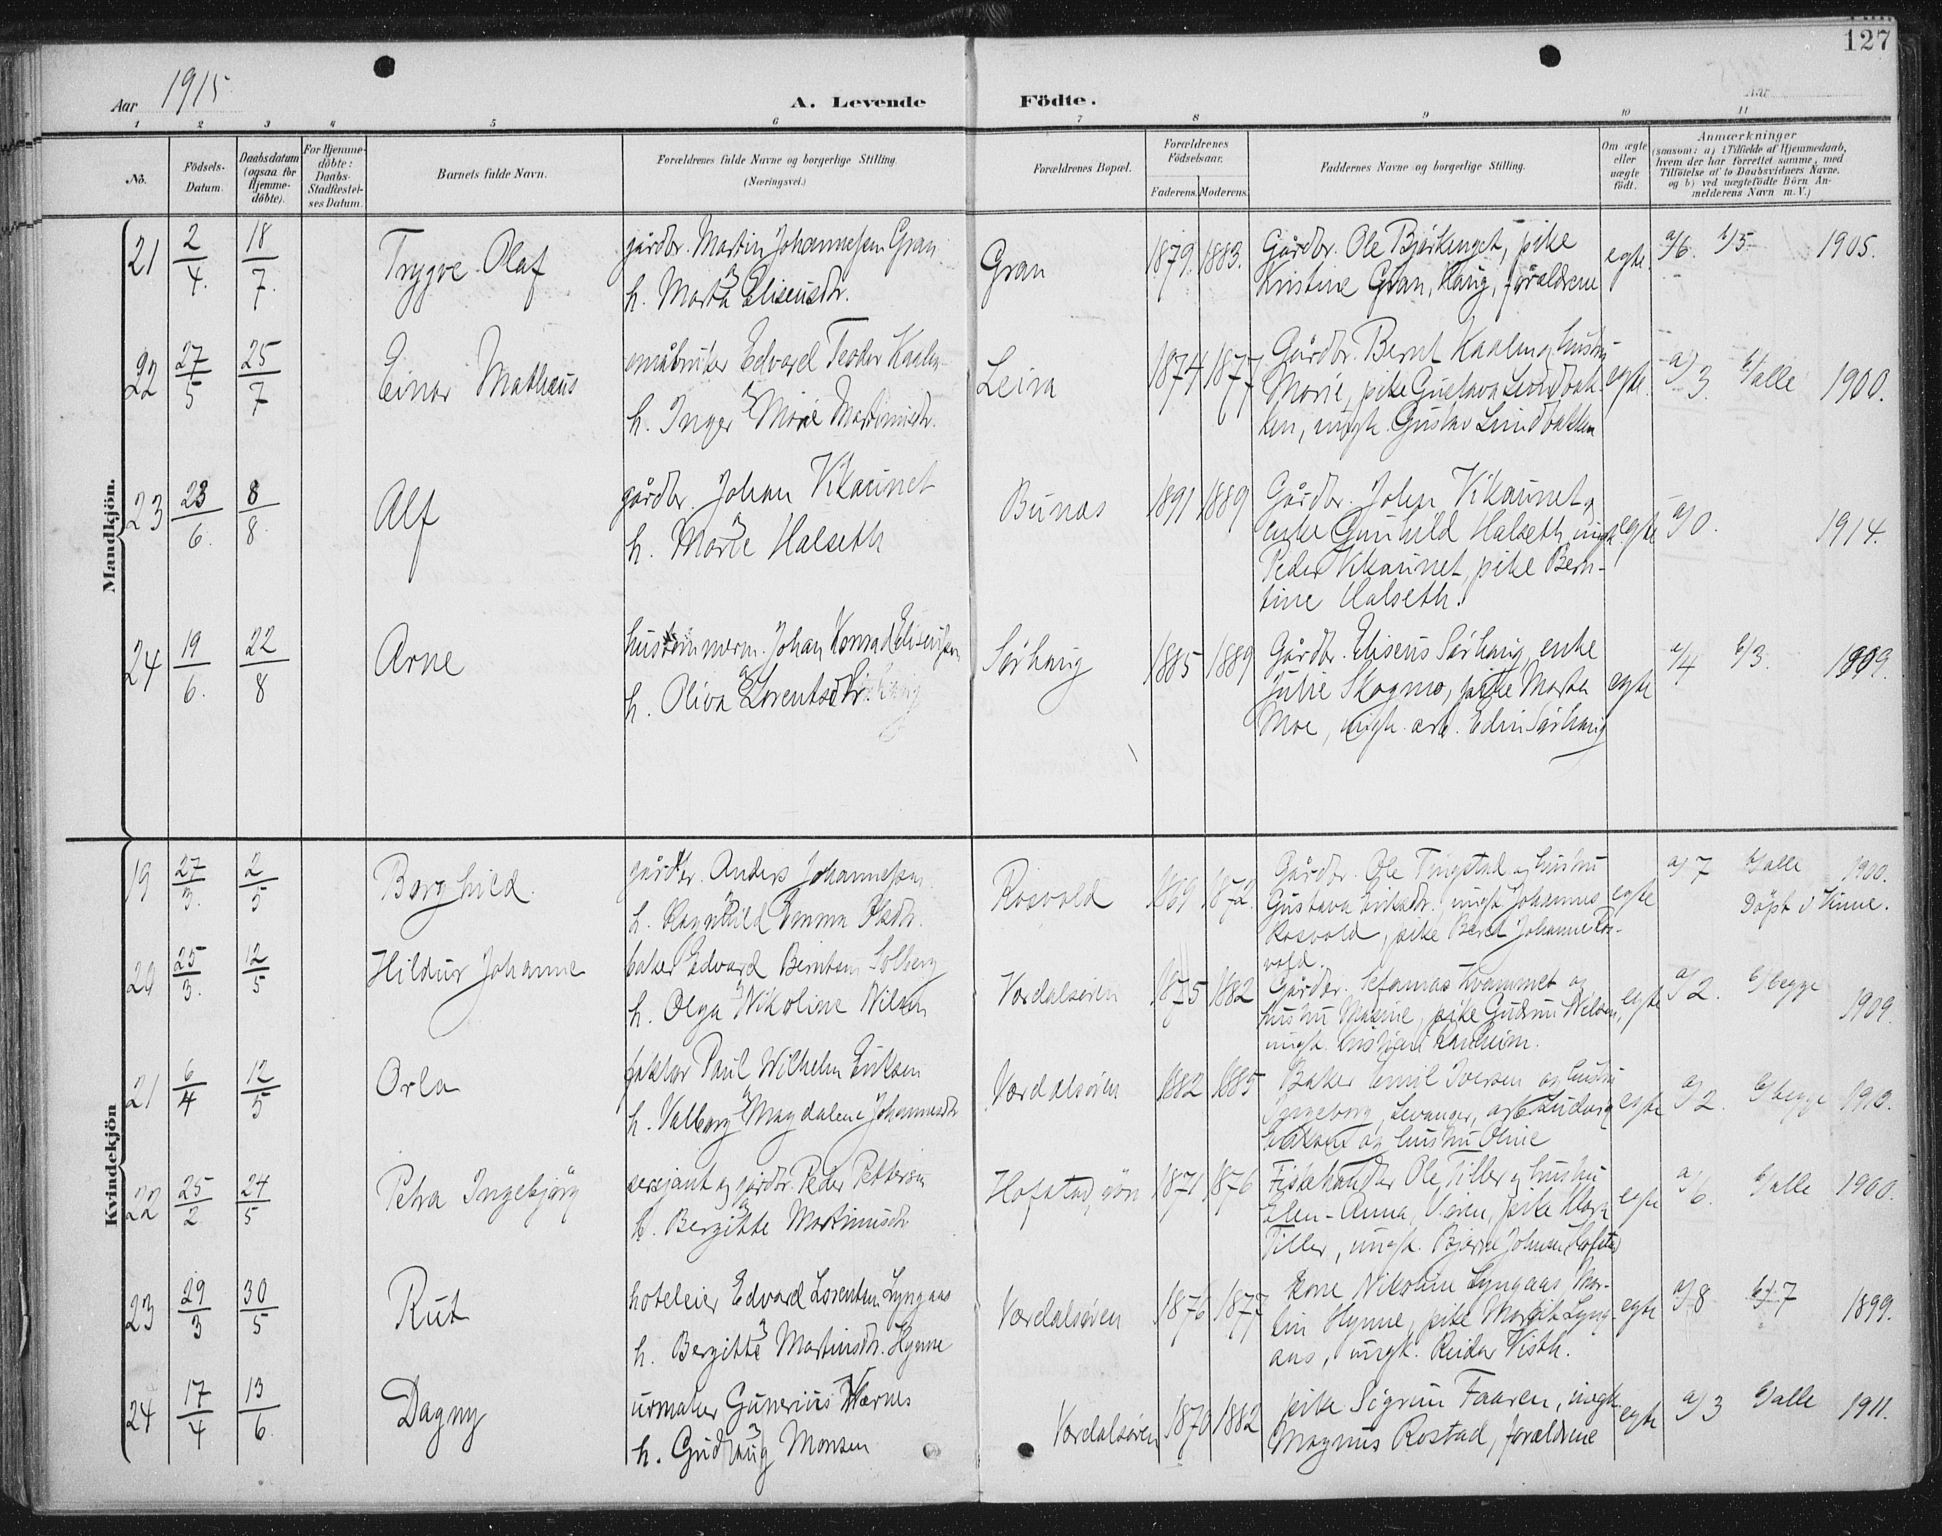 127
Aar 1915
A. Levende Födte.
1 2 3 4 5 6 7 8 9 10 11
No.
Födsels-Datum.
Daabsdatum (ogsaa for Hjemme-döbte).
For Hjemme-döbte: Daabs-Stadfæstel-ses Datum.
Barnets fulde Navn.
Forældrenes fulde Navne og borgerlige Stilling.
(Næringsvei.)
Forældrenes Bopæl.
Forældrenes Födselsaar.
Faderens. Moderens.
Faddernes Navne og borgerlige Stilling.
Om ægte eller uægte födt.
Anmærkninger
(saasom: a) i Tilfælde af Hjemmedaab,
hvem der har forrettet samme, med
Tilföielse af to Daabsvidners Navne,
og b) ved uægtefödte Börn An-
melderens Navn m. V.)
Mandkjön.
21 2/4. 18/7. Trygve Olaf
gårdbr. Martin Johannessen Gran
h. Marta Eliseusdtr.
Gran 1879. 1883.
Gårdbr. Ole Bjørkenget, pike
Kristine Gran, Haug, forældrene
egte. a/6. b/5 1905.
22 27/5 25/7 Einar Mathæus
småbruker Edvard Teodor
h. Inger Marie Martinusdtr.
Leira 1874 1877
Gårdbr. Bernt hustru
Marie, pike Gustava Lundbak-
ken, ungk. Gustav Lundbakken
egte. a/3. b/alle 1900.
23 23/6. 8/8. Alf
gårdbr. Johan Vikaunet
h. Marie Halseth
Bunas 1891 1889
Gårdbr. John Vikaunet,
enke Gunhild Halseth, ungk.
Peder Vikaunet, pike Bern-
tine Halseth.
egte a/0. 1914.
24 19/6. 22/8 Arne
hustømmerm. Johan Konrad Eliseussen
h. Oliva Lorentsdtr.
Sørhaug 1885 1889
Gårdbr. Eliseus Sørhaug, enke
Julie Skogmo, pike Marta
Moe, ungk. arb. Edin Sørhaug
egte a/4 b/3. 1909.
Kvindekjön
19 27/3. 2/5 Borghild.
gårdbr. Anders Johannessen
h. Ragnhild Emma Olsdtr.
Rosvold 1869 1872.
Gårdbr. Ole Tingstad og hustru
Gustava Eriksdtr., ungk. Johannes
Rosvold, pike Beret Johanne Ros-
vold.
egte a/7 b/alle 1900.
Døpt i Vinne.
20 25/3. 12/5 Hildur Johanne
baker Edvard Berntsen Solberg
h. Olga Nikoline Nilsen
Værdalsøren 1875 1882
Gårdbr. Sefanias Kvammet og
hustru pike Gudrun Nelsen,
ungk. Kristian
egte a/2. b/begge 1909.
21 6/4 12/5 Orla
faktor Paul Wilhelm Eriksen
h. Valborg Magdalene Johannesdtr
Værdalsøren 1882 1885
Baker Emil Iversen og hustru
Ingeborg, Levanger, arb. Ludvig
og hustru Oline
egte a/2. b/begge 1913.
22 25/2 24/5 Petra Ingebjørg
sersjant og gårdbr. Peder Pettersen
h. Bergitte Martinusdtr
Hofstad, øvre 1871 1876
Fiskehandler Ole Tiller og hustru
Elen-Anna, pike Klara
Tiller, ungk. Bjarne Johnsen Hofstad
egte a/6. b/alle 1900.
23 29/3 30/5 Rut
hoteleier Edvard Lorentsen Lyngaas
h. Bergitte Martinsdtr. Hynne
Værdalsøren 1876 1877
Kone Nikoline Lyngaas, Mar-
tin Hynne, pike Margit Lyng-
aas, ungk. Reidar Visth.
egte a/8 b/7 1899.
24 17/4 13/6 Dagny
urmaker Gunerius Wærnes
h. Gudlaug Monsen
Værdalsøren 1870 1882
pike Sigrun Faaren, ungk.
Magnus Rostad, forældrene
egte a/3 b/alle 1911.